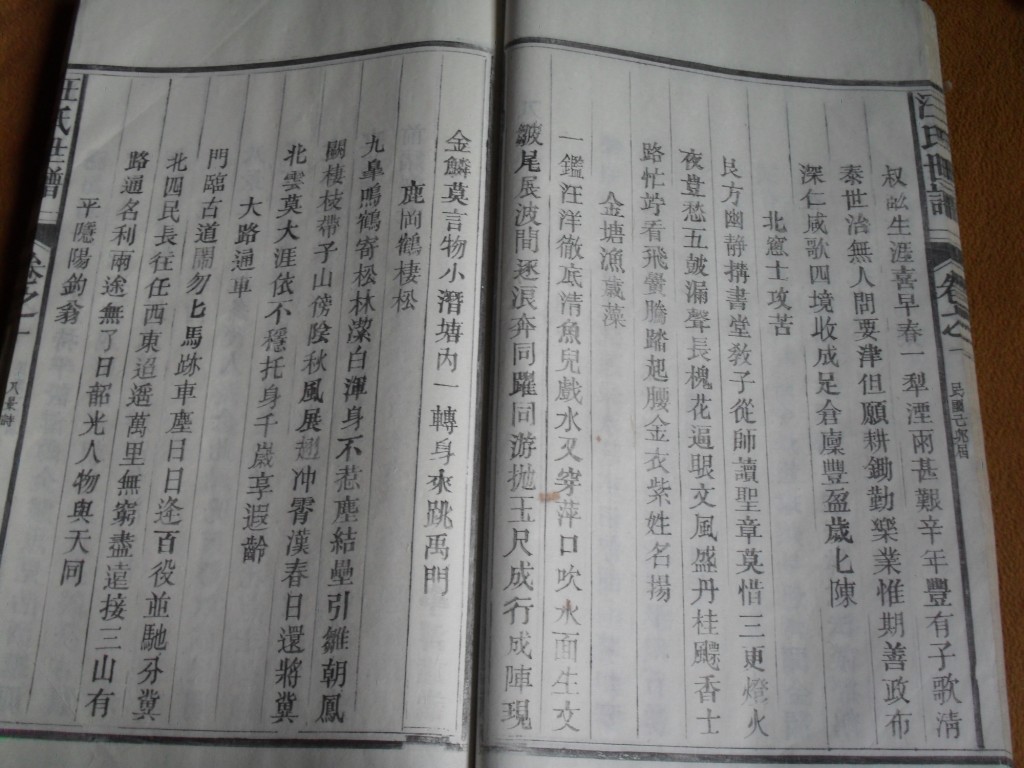 汪氏世譜
卷之一
民國己
叔 生涯喜早春一犁湮雨甚艱辛年豐有子歌清
泰世治無人問要津但願耕鋤勤樂業惟期善政布
深仁咸歌四境收成足倉廩豐盈歲匕陳
北窓士攻苦
艮方幽靜搆書堂敎子從師讀聖章莫惜三更燈火
夜豊愁五皷漏聲長槐花逼眼文風盛丹桂颺香士
路忙竚看飛黌騰踏起腰金衣紫姓名揚
金塘漁戲藻
一鑑汪洋徹底清魚兒戲水又穿萍口吹水面生文
皺尾展波間逐浪奔同躍同游抛玉尺成行成陣現
金鱗莫言物小潛塘內一轉身來跳禹門
鹿岡鶴棲松
九臯鳴鶴寄松林潔白渾身不惹塵結壘引雛朝鳳
闕棲枝帶子山傍陰秋風展翅冲霄漢春日還將糞
北雲莫大涯依不穩托身千歲享遐齡
大路通車
門臨古道鬧勿匕馬跡車塵日日逢百役並馳分糞
北四民長往任西東迢遞萬里無窮盡遠接三山有
路通名利兩途無了日韶光人物與天同
平隱陽釣翁
汪氏世譜
卷之一
八景詩